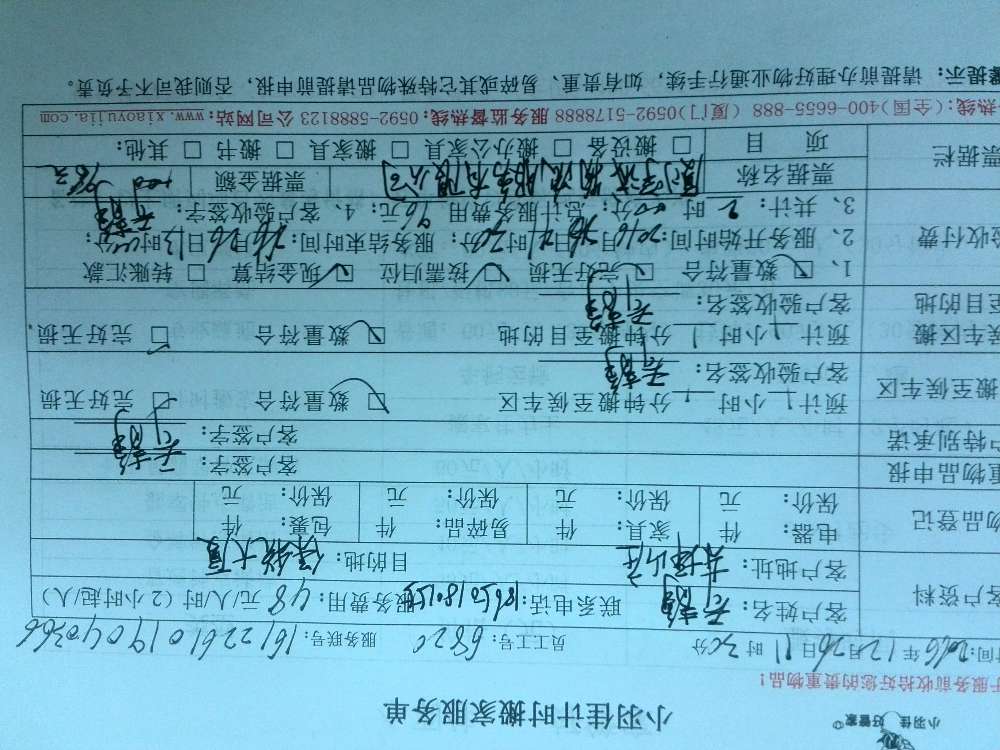 小羽佳 好管家
小羽佳计时搬家服务单
服务前收拾好您的贵重物品！
时间：2016年12月26日11时30分 员工工号：6820 服务联号：1612261019040366
客户资料 客户姓名： 联系电话： 服务费用：48元/人/时（2小时起/人）
客户地址： 目的地：
物品登记 电器： 件 家具： 件 易碎品： 件 包裹： 件
保价： 元 保价： 元 保价： 元 保价： 元
重物品申报 客户签字：
户特别承诺 客户签字：
搬至候车区 预计1小时 分钟搬至候车区 数量符合 完好无损
客户验收签名：
候车区搬至目的地 预计1小时 分钟搬至目的地 数量符合 完好无损.
客户验收签名：
验收付费 1、 数量符合 完好无损 按需归位 现金结算 转账汇款
2、服务开始时间：2016年 月 日 时30分；服务结束时间： 月26日13时 分；
3、共计：2时00分；总计服务费用96元；4、客户验收签字：
票据栏 票据名称 票据金额
项目 搬设备 搬办公家具 搬家具 搬书 其他：
热线：(全国)400-6655-888 (厦门)0592-5178888 服务监督热线：0592-5888123 公司网站：www.xiaoyujia.com
馨提示：请提前办理好物业通行手续，如有贵重、易碎或其它特殊物品请提前申报，否则我司不予负责。